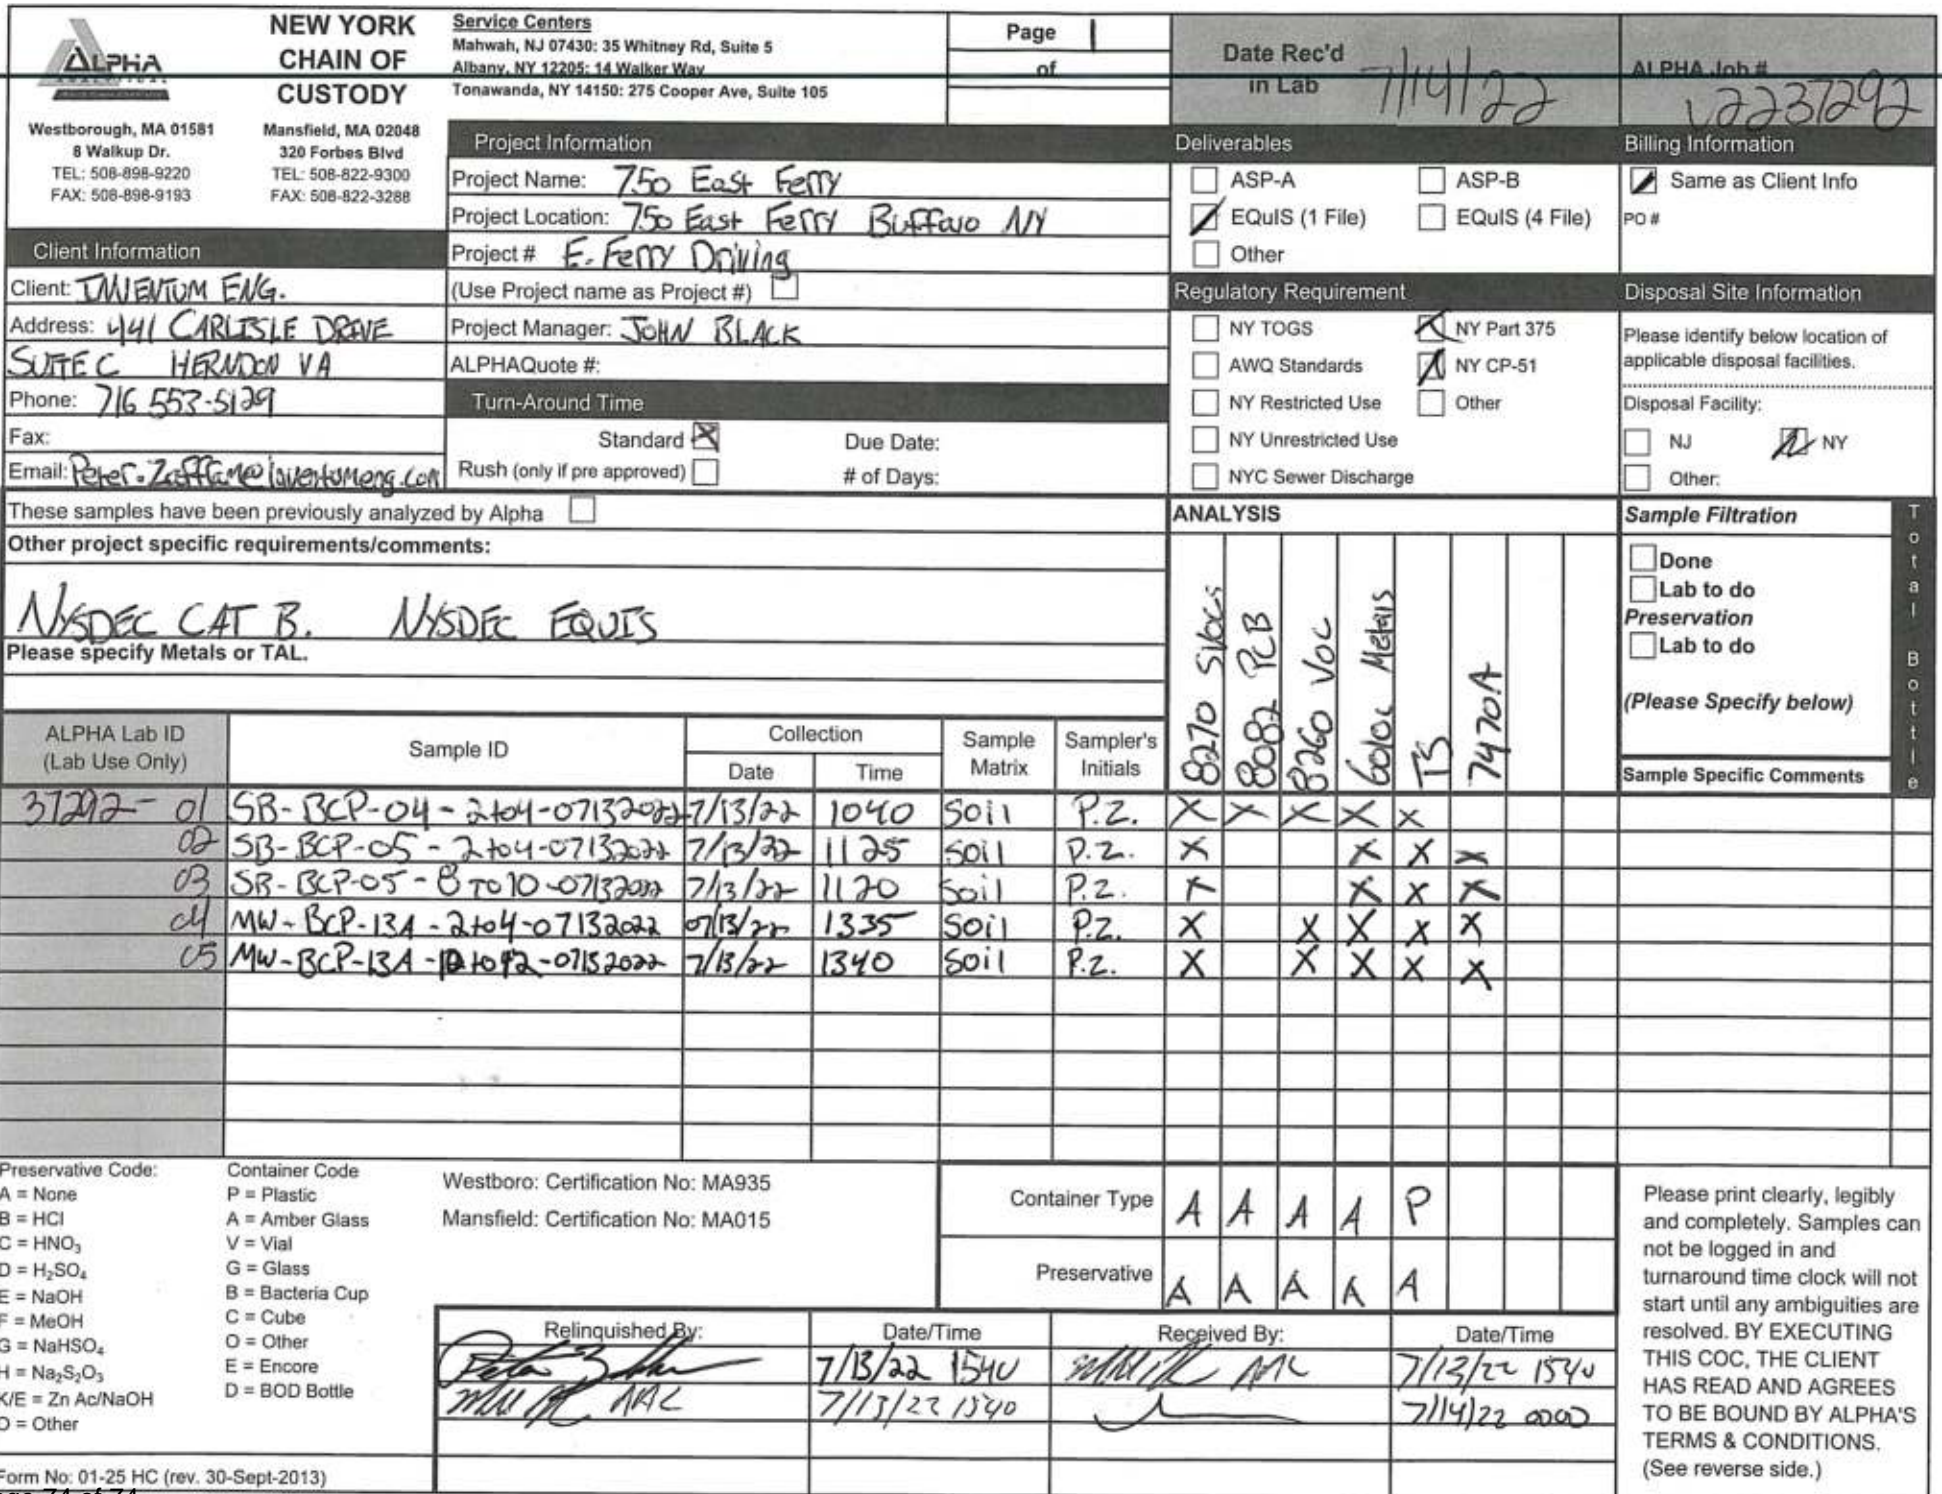 ALPHA
ANALYTICAL
NEW YORK
CHAIN OF
CUSTODY
Service Centers
Mahwah, NJ 07430: 35 Whitney Rd, Suite 5
Albany, NY 12205: 14 Walker Way
Tonawanda, NY 14150: 275 Cooper Ave, Suite 105
Page 1
of
Date Rec'd
in Lab 7/14/22
ALPHA Job #
L2237292
Westborough, MA 01581
8 Walkup Dr.
TEL: 508-898-9220
FAX: 508-898-9193
Mansfield, MA 02048
320 Forbes Blvd
TEL: 508-822-9300
FAX: 508-822-3288
Project Information
Project Name: 750 East Ferry
Project Location: 750 East Ferry Buffalo NY
Project # E. Ferry Driving
(Use Project name as Project #)
Project Manager: JOHN BLACK
ALPHAQuote #:
Turn-Around Time
Standard X Due Date:
Rush (only if pre approved) # of Days:
Deliverables
ASP-A ASP-B
EQuIS (1 File) EQuIS (4 File)
Other
Billing Information
Same as Client Info
PO #
Client Information
Client: INVENTUM ENG.
Address: 441 CARLISLE DRIVE
SUITE C HERNDON VA
Phone: 716 553-5129
Fax:
Email: @inventumeng.com
Regulatory Requirement
NY TOGS NY Part 375
AWQ Standards NY CP-51
NY Restricted Use Other
NY Unrestricted Use
NYC Sewer Discharge
Disposal Site Information
Please identify below location of
applicable disposal facilities.
Disposal Facility:
NJ NY
Other:
These samples have been previously analyzed by Alpha
Other project specific requirements/comments:
NYSDEC CAT B. NYSDEC EQUIS
Please specify Metals or TAL.
ANALYSIS
8270 SVOCs
8082 PCB
8260 VOC
6010c Metals
TS
7470A
Sample Filtration
Done
Lab to do
Preservation
Lab to do
(Please Specify below)
Sample Specific Comments
Total Bottle
ALPHA Lab ID
(Lab Use Only)
Sample ID
Collection
Date Time
Sample
Matrix
Sampler's
Initials
37292- 01 SB-BCP-04-2to4-07132022 7/13/22 1040 Soil P.Z. X X X X X
02 SB-BCP-05-2to4-07132022 7/13/22 1125 Soil P.Z. X X X X
03 SB-BCP-05-8TO10-07132022 7/13/22 1120 Soil P.Z. X X X X
04 MW-BCP-13A-2to4-07132022 07/13/22 1335 Soil P.Z. X X X X X
05 MW-BCP-13A- 7/13/22 1340 Soil P.Z. X X X X X
Preservative Code:
A = None
B = HCl
C = HNO3
D = H2SO4
E = NaOH
F = MeOH
G = NaHSO4
H = Na2S2O3
K/E = Zn Ac/NaOH
O = Other
Container Code
P = Plastic
A = Amber Glass
V = Vial
G = Glass
B = Bacteria Cup
C = Cube
O = Other
E = Encore
D = BOD Bottle
Westboro: Certification No: MA935
Mansfield: Certification No: MA015
Container Type A A A A P
Preservative A A A A A
Relinquished By: Date/Time Received By: Date/Time
7/13/22 1540 AAL 7/13/22 1540
AAL 7/13/22 1540 7/14/22 0000
Please print clearly, legibly
and completely. Samples can
not be logged in and
turnaround time clock will not
start until any ambiguities are
resolved. BY EXECUTING
THIS COC, THE CLIENT
HAS READ AND AGREES
TO BE BOUND BY ALPHA'S
TERMS & CONDITIONS.
(See reverse side.)
Form No: 01-25 HC (rev. 30-Sept-2013)